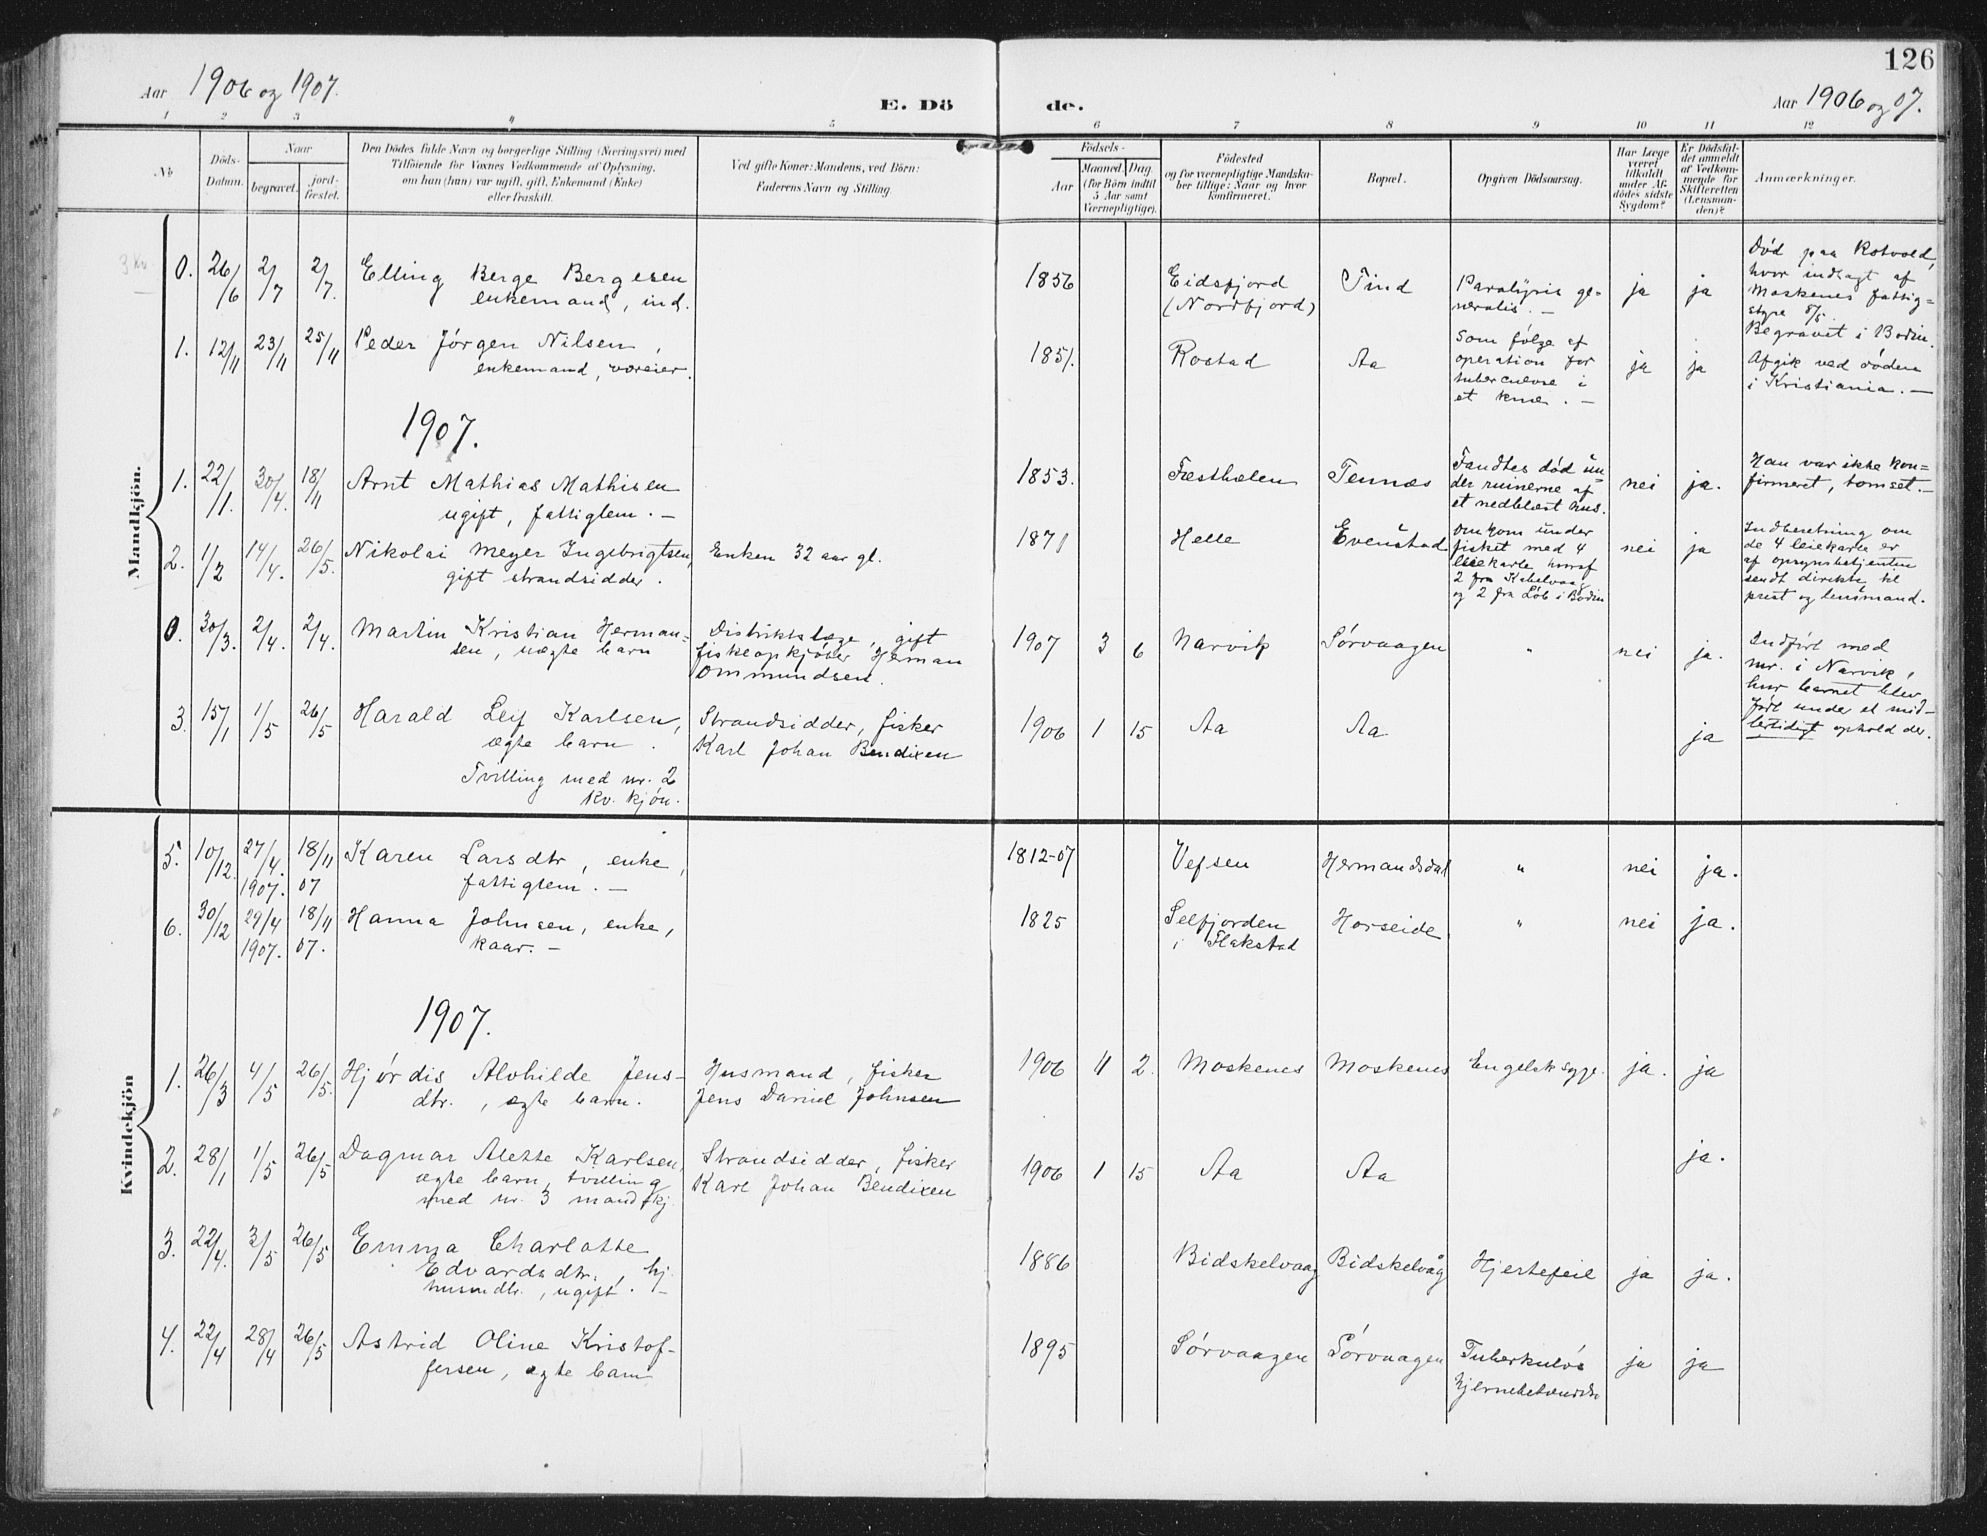 126
Aar 1906 og 1907.
E. Dö
de.
Aar 1906 og 07.
1 2 3 4 5 6 7 8 9 10 11 12
No
Döds-
Datum.
Naar
begravet.
jord-
fæstet.
Den Dödes fulde Navn og borgerlige Stilling (Næringsvei) med
Tilföiende for Voxnes Vedkommende af Oplysning,
om han (hun) var ugift, gift, Enkemand (Enke)
eller fraskilt.
Ved gifte Koner: Mandens, ved Börn:
Faderens Navn og Stilling.
Födsels-
Aar
Maaned. Dag
(for Börn indtil
5 Aar samt
Værnepligtige).
Födested
og for værnepligtige Mandska-
ber tillige: Naar og hvor
konfirmeret.
Bopæl.
Opgiven Dödsaarsag.
Har Læge
været
tilkaldt
under Af-
dödes sidste
Sygdom?
Er Dödsfal-
det anmeldt
af Vedkom-
mende for
Skifteretten
(Lensman-
den)?
Anmærkninger.
Mandkjön.
0. 26/6 2/7 2/7. Elling Berge Bergesen
enkemand, ind.
1856 Eidsfjord
(Nordfjord)
Tind
Paralysis ge-
neralis. —
ja ja
Død paa Rotvold,
hvor indlagt af
Moskenes fattig=
styre 8/5.
Begravet i Bodin.
1. 12/11 23/11 25/11 Peder Jørgen Nilsen,
enkemand, væreier.
1851. Rostad Aa
Som følge af
operation for
tuberculose i
et knæ. —
ja ja
Afgik ved døden
i Kristiania. —
1907.
1. 22/1. 30/4. 18/11 Arnt Mathias Mathisen
ugift, fattiglem. —
1853. Festhælen Tennæs
Fandtes død un-
der ruinerne af
et nedblæst hus.
nei ja.
Han var ikke kon=
firmeret, tomset. —
2. 1/2 14/4. 26/5. Nikolai Meyer Ingebrigtsen,
gift strandsidder.
Enken 32 aar gl.
1871 Helle Evenstad
Omkom under
fisket med 4
leiekarle hvoraf
2 fra Kabelvaag
og 2 fra Løb i Bodin
nei ja
Indberetning om
de 4 leiekarle er
af opsynsbetjenten
sendt direkte til
prest og lensmand.
0. 30/3. 2/4. 2/4. Martin Kristian Herman=
sen, uægte barn
Distriktslæge, gift
fiskeopkjøber Herman
Ommundsen.
1907 3 6 Narvik Sørvaagen " nei ja.
Indført med
nr. i Narvik,
hvor barnet blev
født under et mid-
lertidigt ophold der.
3. 15/1 1/5 26/5 Harald Leif Karlsen,
ægte barn.
Tvilling med nr. 2
kv. kjøn.
Strandsidder, fisker
Karl Johan Bendixen
1906 1 15 Aa Aa ja
Kvindekjön
5. 10/12. 27/4. 1907. 18/11 07 Karen Larsdtr, enke,
fattiglem. —
1812-07 Vefsen Hermandsdal " nei ja.
6. 30/12 29/4 1907. 18/11 07. Hanna Johnsen, enke,
kaar. —
1825 Selfjorden
i Flakstad
Horseide. " nei ja.
1907.
1. 26/3 4/5 26/5. Hjørdis Alvhilde Jens-
dtr., ægte barn.
Husmand, fisker
Jens Daniel Johnsen
1906 11 2. Moskenes Moskenes Engelsk syge. ja. ja
2. 28/1 1/5 26/5 Dagmar Alette Karlsen,
ægte barn, tvilling
med nr. 3 mandkj.
Strandsidder, fisker
Karl Johan Bendixen
1906 1 15 Aa Aa ja.
3. 22/4. 3/5 26/5 Emma Charlotte
Edvardsdtr., hj.
husmdtr., ugift. —
1886 Bidskelvaag Bidskelvåg Hjertefeil ja ja.
4. 22/4 28/4 26/5 Astrid Oline Kristof-
fersen, ægte barn
1895 Sørvaagen Sørvaagen Tuberkuløs
hjernebetændelse
ja ja